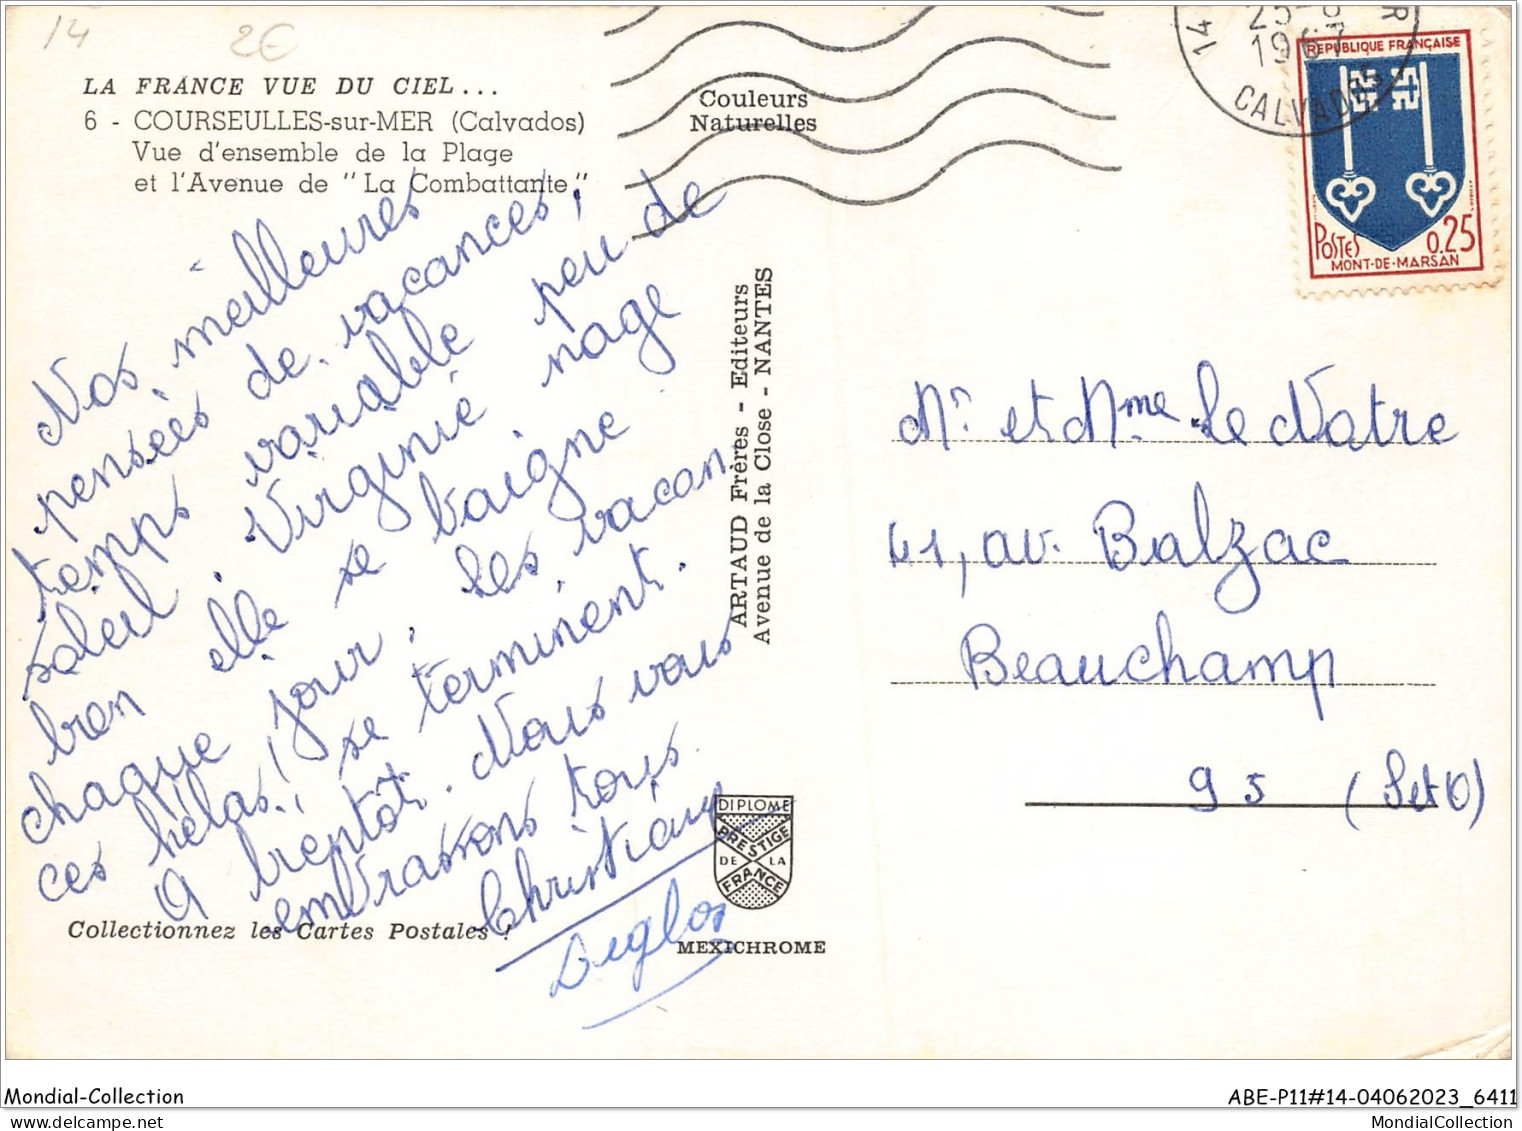 14
2€
LA FRANCE VUE DU CIEL...
6 - COURSEULLES-sur-MER (Calvados)
Vue d'ensemble de la Plage
et l'Avenue de "La Combattante"
Couleurs
Naturelles
Nos meilleures
pensées de vacances,
temps variable peu de
soleil. Virginie nage
bien elle se baigne
chaque jour. Les vacan-
ces hélas! se terminent.
A bientôt. Nous vous
embrassons tous
Christiane
Collectionnez les Cartes Postales !
ARTAUD Frères - Editeurs
Avenue de la Close - NANTES
DIPLOME
PRESTIGE
DE LA
FRANCE
MEXICHROME
14
25
1967
CALVADOS
REPUBLIQUE FRANÇAISE
POSTES 0.25
MONT-DE-MARSAN
Mr et Mme Le Natre
41, av. Balzac
Beauchamp
95 (S et O)
Mondial-Collection
ABE-P11#14-04062023_6411
MondialCollection